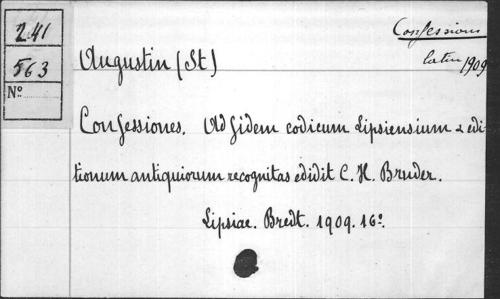 241
563
Nº
Confessions
latin 1909
Augustin (St)
Confessiones. Ad fidem codicum Lipsiensium & edi-
tionum antiquiorum recognitas edidit C. H. Bruder.
Lipsiae. Bredt. 1909. 16º.